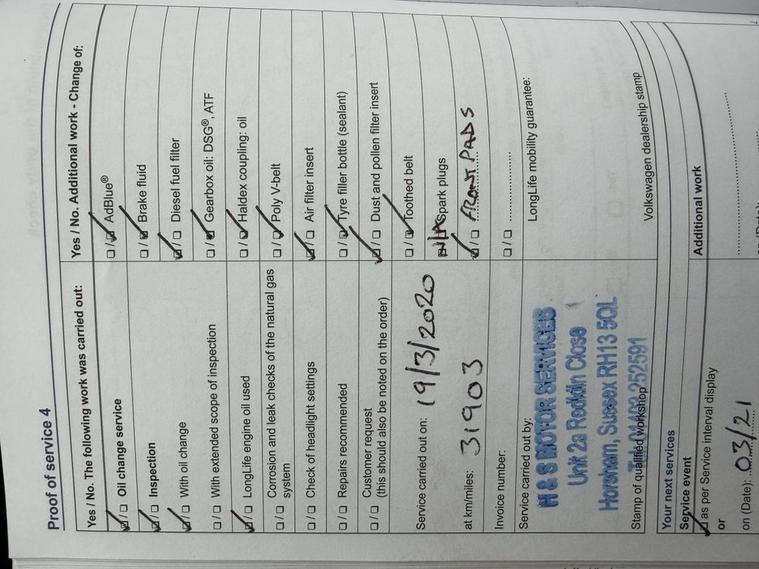 Proof of service 4
Yes / No. The following work was carried out:
Oil change service
Inspection
With oil change
With extended scope of inspection
LongLife engine oil used
Corrosion and leak checks of the natural gas
system
Check of headlight settings
Repairs recommended
Customer request
(this should also be noted on the order)
Yes / No. Additional work - Change of:
AdBlue®
Brake fluid
Diesel fuel filter
Gearbox oil: DSG®, ATF
Haldex coupling: oil
Poly V-belt
Air filter insert
Tyre filler bottle (sealant)
Dust and pollen filter insert
Toothed belt
N/A Spark plugs
FRONT PADS
Service carried out on: 19/3/2020
at km/miles: 31903
Invoice number:
Service carried out by:
H & S MOTOR SERVICES
Unit 2a Redkiln Close
Horsham, Sussex RH13 5QL
Tel: 01403 252591
Stamp of qualified workshop
LongLife mobility guarantee:
Volkswagen dealership stamp
Your next services
Service event
as per Service interval display
or
on (Date): 03/21
Additional work